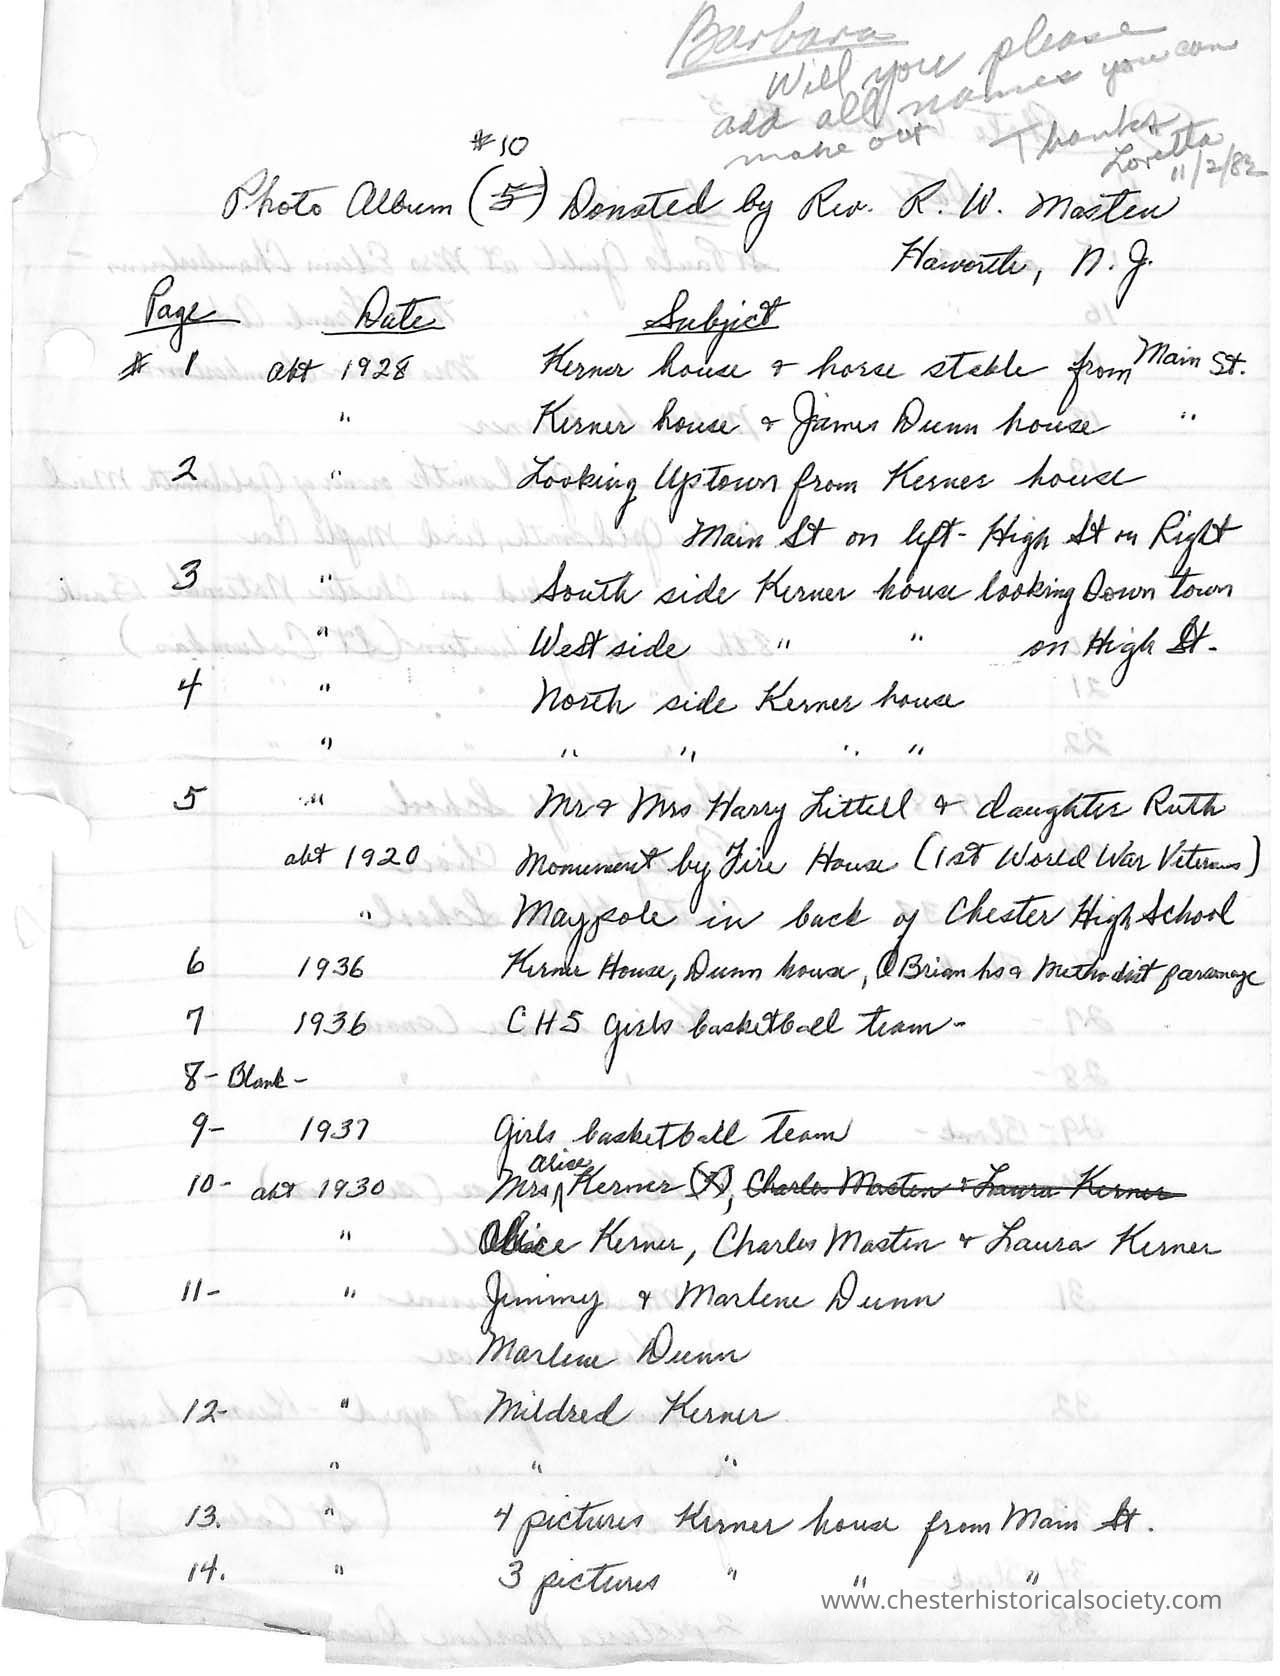 Barbara
Will you please
add all names you can
make out
Thanks
Loretta
11/2/82
#10
Photo Album (5) Donated by Rev. R. W. Masten
Haworth, N. J.
Page Date Subject
# 1 abt 1928 Kerner house & horse stable from Main St.
" Kerner house & James Dunn house "
2 " Looking Uptown from Kerner house
Main St on left - High St on Right
3 " South side Kerner house looking Down town
" West side " " on High St.
4 " North side Kerner house
" " " " "
5 " Mr & Mrs Harry Littell & daughter Ruth
abt 1920 Monument by Fire House (1st World War Veterans)
" Maypole in back of Chester High School
6 1936 Kerner House, Dunn house, O Brian hs & Methodist parsonage
7 1936 CHS Girls basketball team -
8 - Blank -
9 - 1937 Girls basketball team
10 - abt 1930 Mrs Alice Kerner (X), Charles Masten & Laura Kerner
" Alice Kerner, Charles Masten & Laura Kerner
11 - " Jimmy & Marlene Dunn
Marlene Dunn
12 - " Mildred Kerner
" " "
13. " 4 pictures Kerner house from Main St.
14. " 3 pictures " " "
www.chesterhistoricalsociety.com